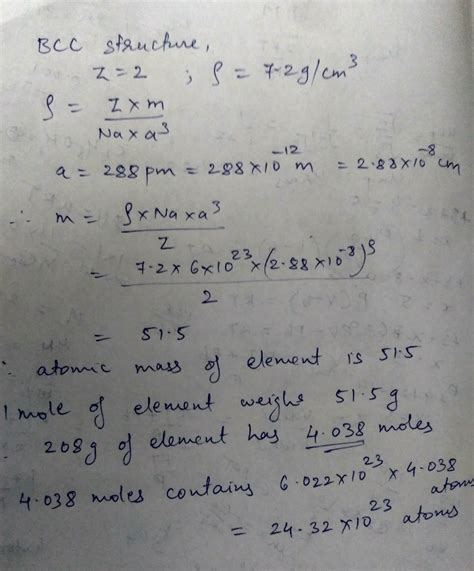 BCC structure,
Z = 2 ; ρ = 7.2g/cm³
ρ = Z × m / Na × a³
a = 288 pm = 288×10⁻¹² m = 2.88×10⁻⁸ cm
∴ m = ρ × Na × a³ / Z
= 7.2 × 6×10²³ × (2.88 × 10⁻⁸)³ / 2
= 51.5
∴ atomic mass of element is 51.5
1 mole of element weighs 51.5 g
208g of element has 4.038 moles
4.038 moles contains 6.022×10²³ × 4.038 atoms
= 24.32 ×10²³ atoms